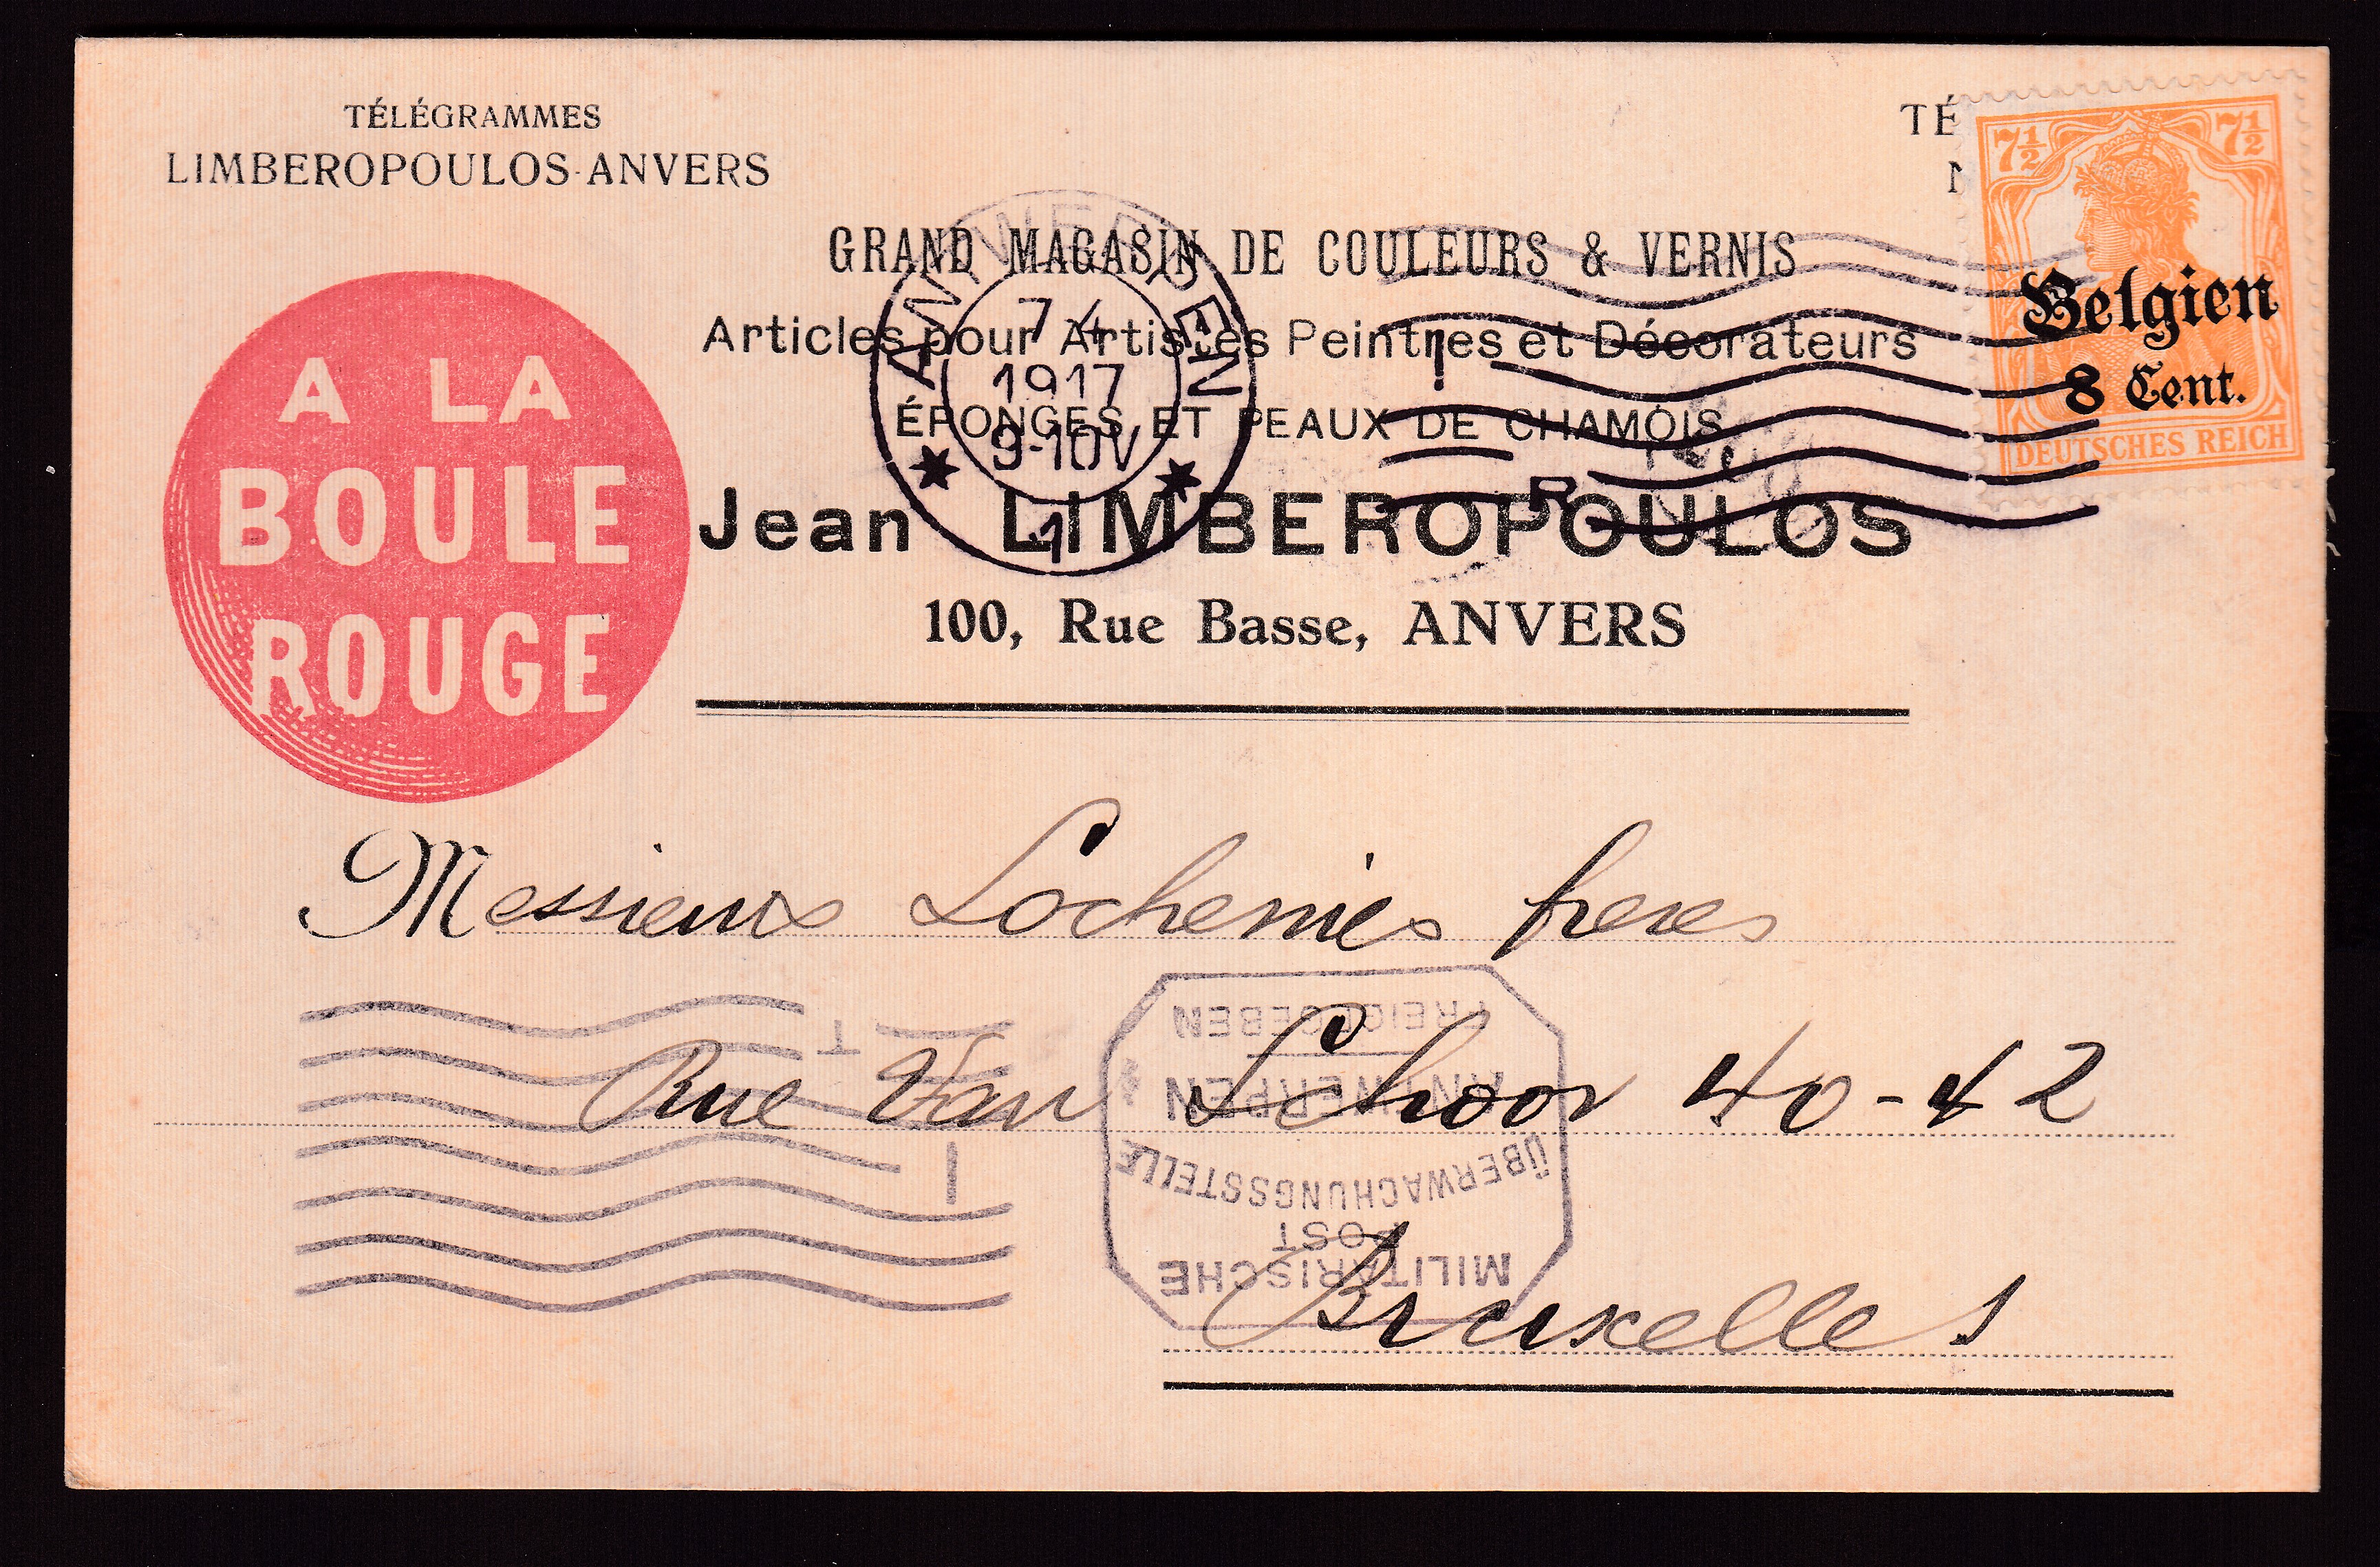 TÉLÉGRAMMES
LIMBEROPOULOS-ANVERS
TÉ
7½ 7½
Belgien
8 Cent.
DEUTSCHES REICH
A LA
BOULE
ROUGE
GRAND MAGASIN DE COULEURS & VERNIS
Articles pour Artistes Peintres et Décorateurs
ÉPONGES ET PEAUX DE CHAMOIS
Jean LIMBEROPOULOS
100, Rue Basse, ANVERS
ANTWERPEN
7 4
1917
9-10V
1
Messieurs Lochemies freres
Rue Van Schoor 40-42
Bruxelles
MILITÄRISCHE
POST
ÜBERWACHUNGSSTELLE
ANTWERPEN
FREIGEGEBEN